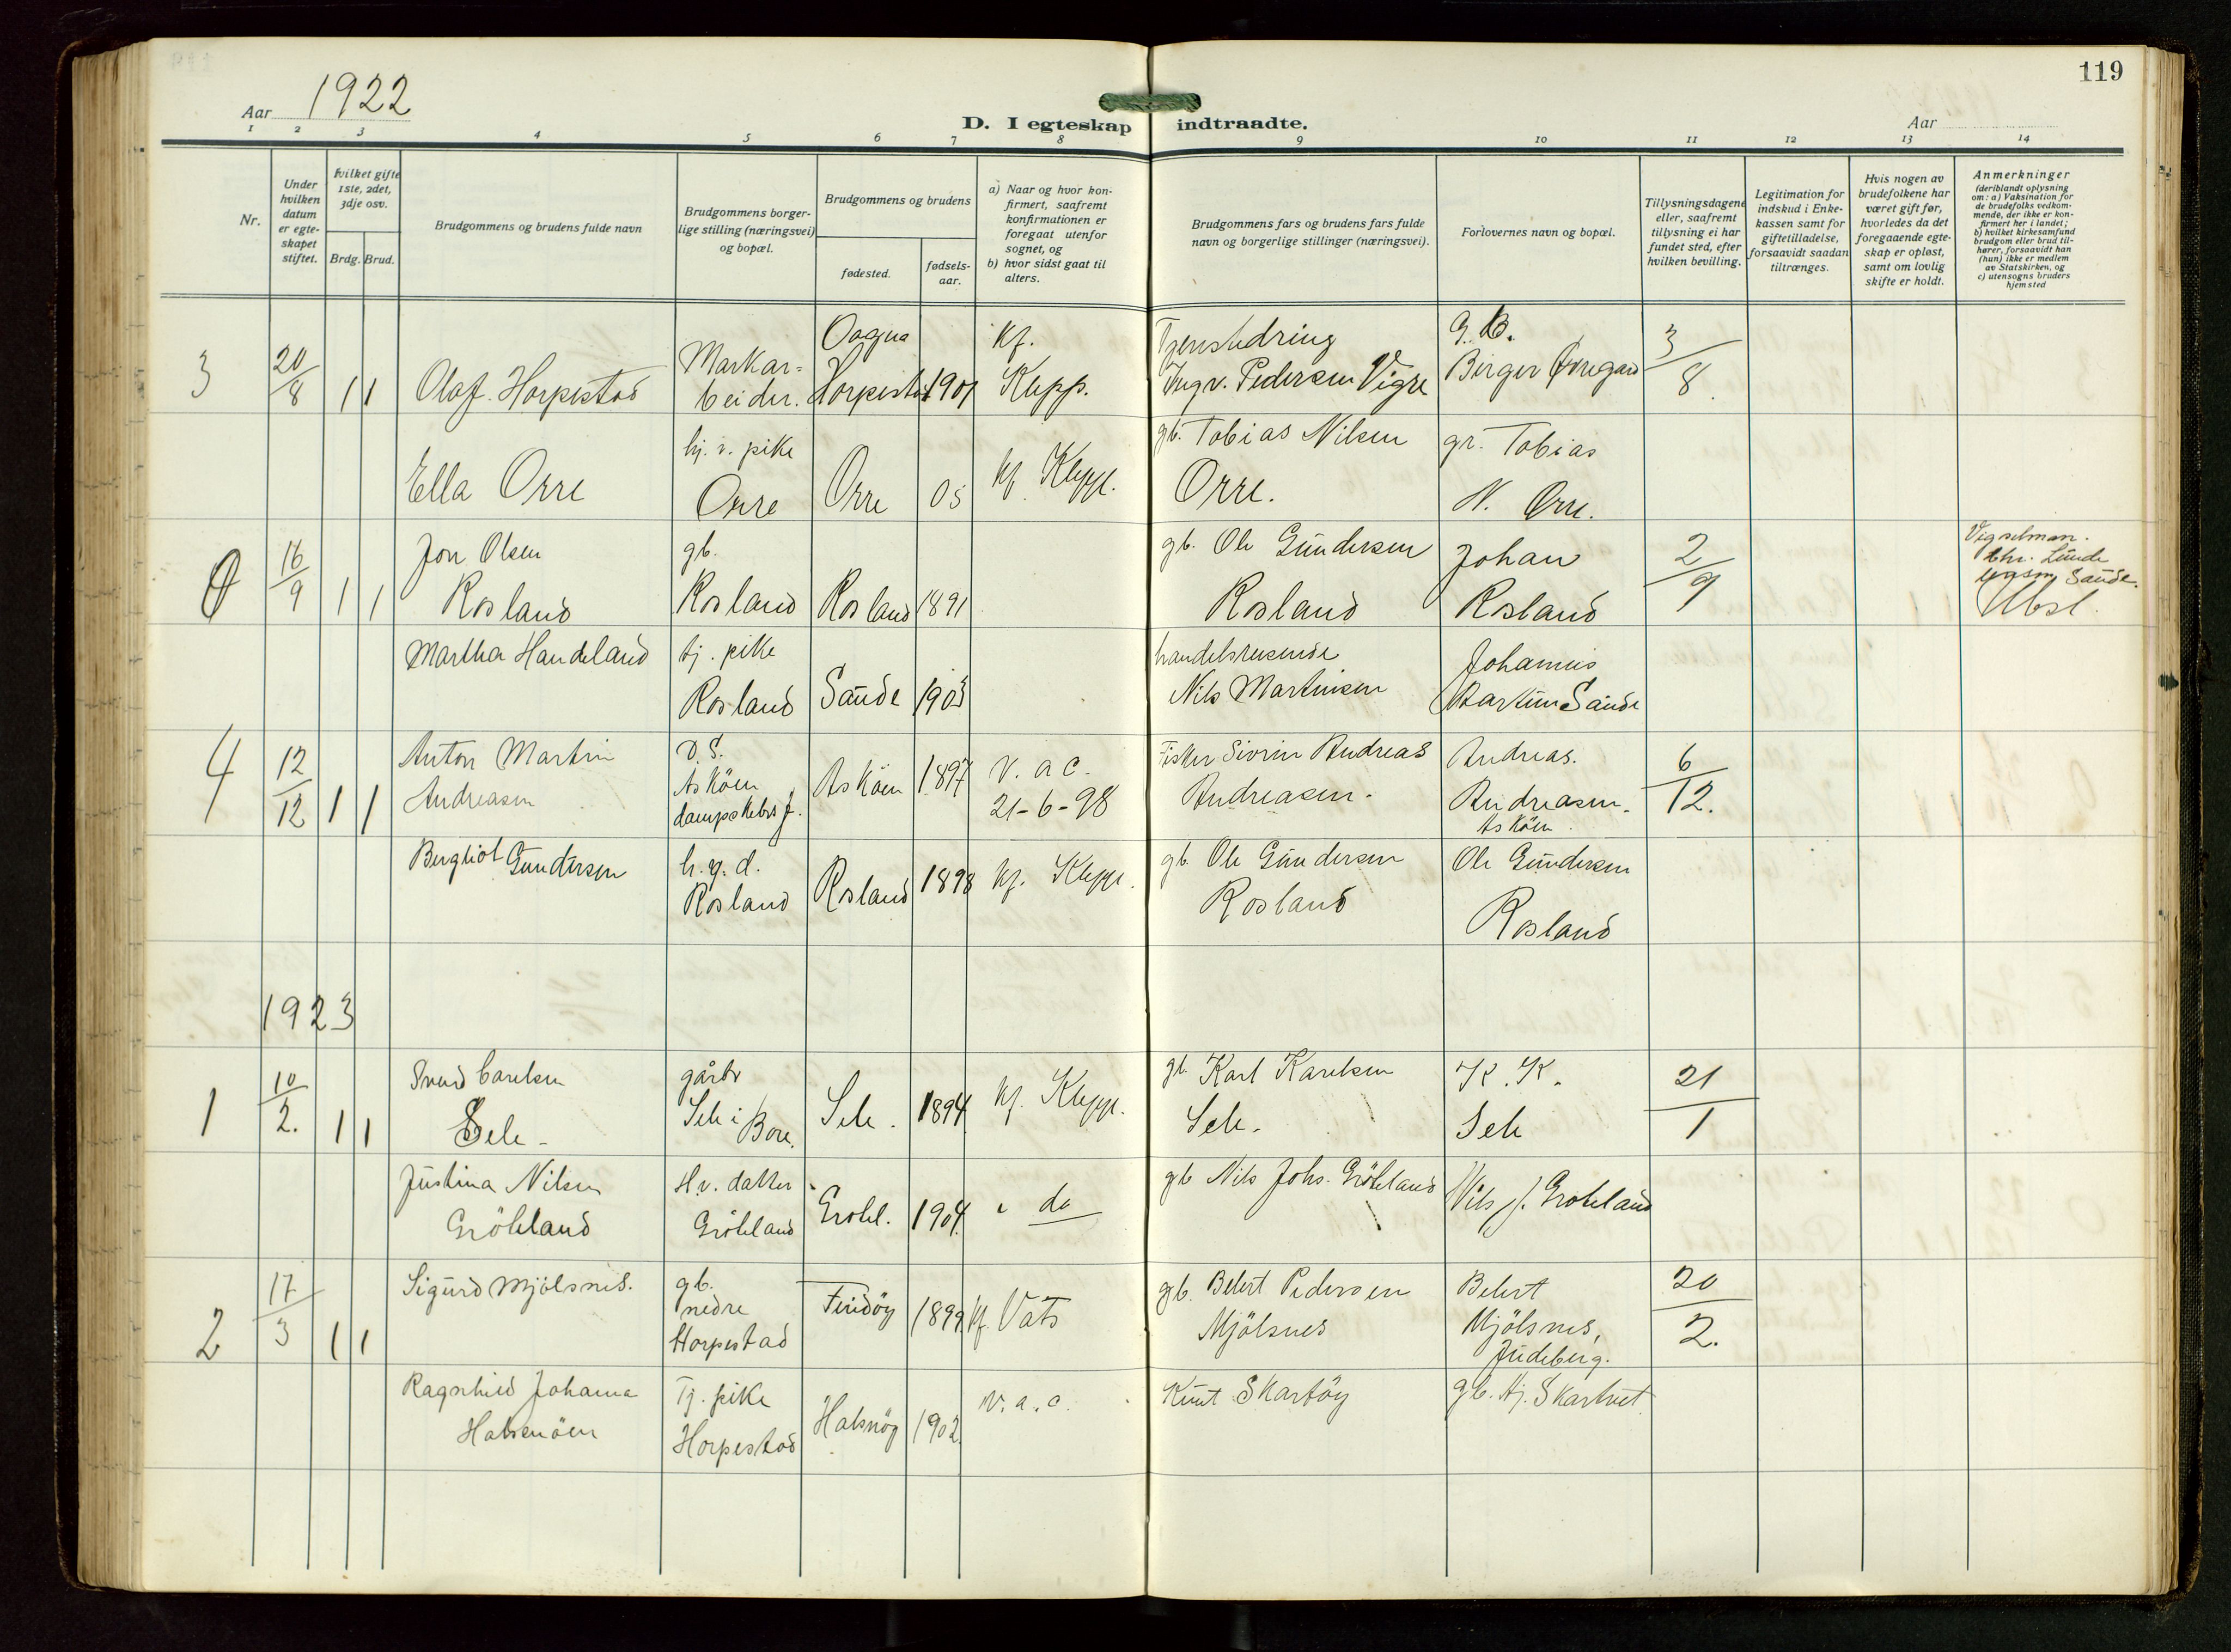 119
Aar 1922
D. I egteskap indtraadte.
Aar
1 2 3 4 5 6 7 8 9 10 11 12 13 14
Nr.
Under
hvilken
datum
er egte-
skapet
stiftet.
hvilket gifte
1ste, 2det,
3dje osv.
Brdg. Brud.
Brudgommens og brudens fulde navn
Brudgommens borger-
lige stilling (næringsvei)
og bopæl.
Brudgommens og brudens
fødested.
fødsels-
aar.
a) Naar og hvor kon-
firmert, saafremt
konfirmationen er
foregaat utenfor
sognet, og
b) hvor sidst gaat til
alters.
Brudgommens fars og brudens fars fulde
navn og borgerlige stillinger (næringsvei).
Forlovernes navn og bopæl.
Tillysningsdagene
eller, saafremt
tillysning ei har
fundet sted, efter
hvilken bevilling.
Legitimation for
indskud i Enke-
kassen samt for
giftetilladelse,
forsaavidt saadan
tiltrænges.
Hvis nogen av
brudefolkene har
været gift før,
hvorledes da det
foregaaende egte-
skap er opløst,
samt om lovlig
skifte er holdt.
Anmerkninger
(deriblandt oplysning
om: a) Vaksination for
de brudefolks vedkom-
mende, der ikke er kon-
firmert her i landet;
b) hvilket kirkesamfund
brudgom eller brud til-
hører, forsaavidt han
(hun) ikke er medlem
av Statskirken, og
c) utensogns bruders
hjemsted
3
20/8
1 1
Olaf Horpestad
Markar-
beider.
Horpestad
1901
kf.
Klepp.
Ingv. Pedersen Vigre
G. B.
Birger Øvregard
3/8
Ella Orre
hj. v. pike
Orre
Orre
05
kf Klepp.
gb. Tobias Nilsen
Orre.
gr. Tobias
N. Orre.
0
16/9
1 1
Jon Olsen
Rosland
gb.
Rosland
Rosland
1891
gb. Ole Gundersen
Rosland
Johan
Rosland
2/9
Vigselman.
Chr. Lunde
Saude.
Martha Handeland
tj. pike
Rosland
Saude
1903
handelsreisende
Nils Martinsen
Johannes
Martin Saude
4
12/12
1 1
Anton Martin
Andreasen
D. S.
Asköen
dampskibs f.
Asköen
1897
v. a c.
21-6-98
Fisker Sivrin Andreas
Andreasen.
Andreas.
Andreasen.
Asköen.
6/12.
Bergliot Gundersen
h. g. d.
Rosland
Rosland
1898
kf. Klepp.
gb. Ole Gundersen
Rosland
Ole Gundersen
Rosland
1923
1
10/2.
1 1
Svend Carelsen
Sele -
gårbr
Sele i Bore.
Sele.
1894
kf. Klepp.
gb. Karl Karelsen
Sele.
K. K.
Sele
21/1
Justina Nilsen
Gröteland
H. v. datter
Gröteland
Grotel.
1904.
i do
gb Nils Johs. Gröteland
Nils J. Groteland
2
17/3
1 1
Sigurd Mjölsnes.
gb.
nedre
Horpestad
Findöy
1899
kf. Vats
gb. Belert Pedersen
Mjölsnes
Belert
Mjölsnes,
Judeberg.
20/2.
Ragnhild Johanna
Halsenöen
Tj. pike
Horpestad
Halsnöy
1902.
v. a. c.
Knut Skartöy
gb. Aj. Skartvet